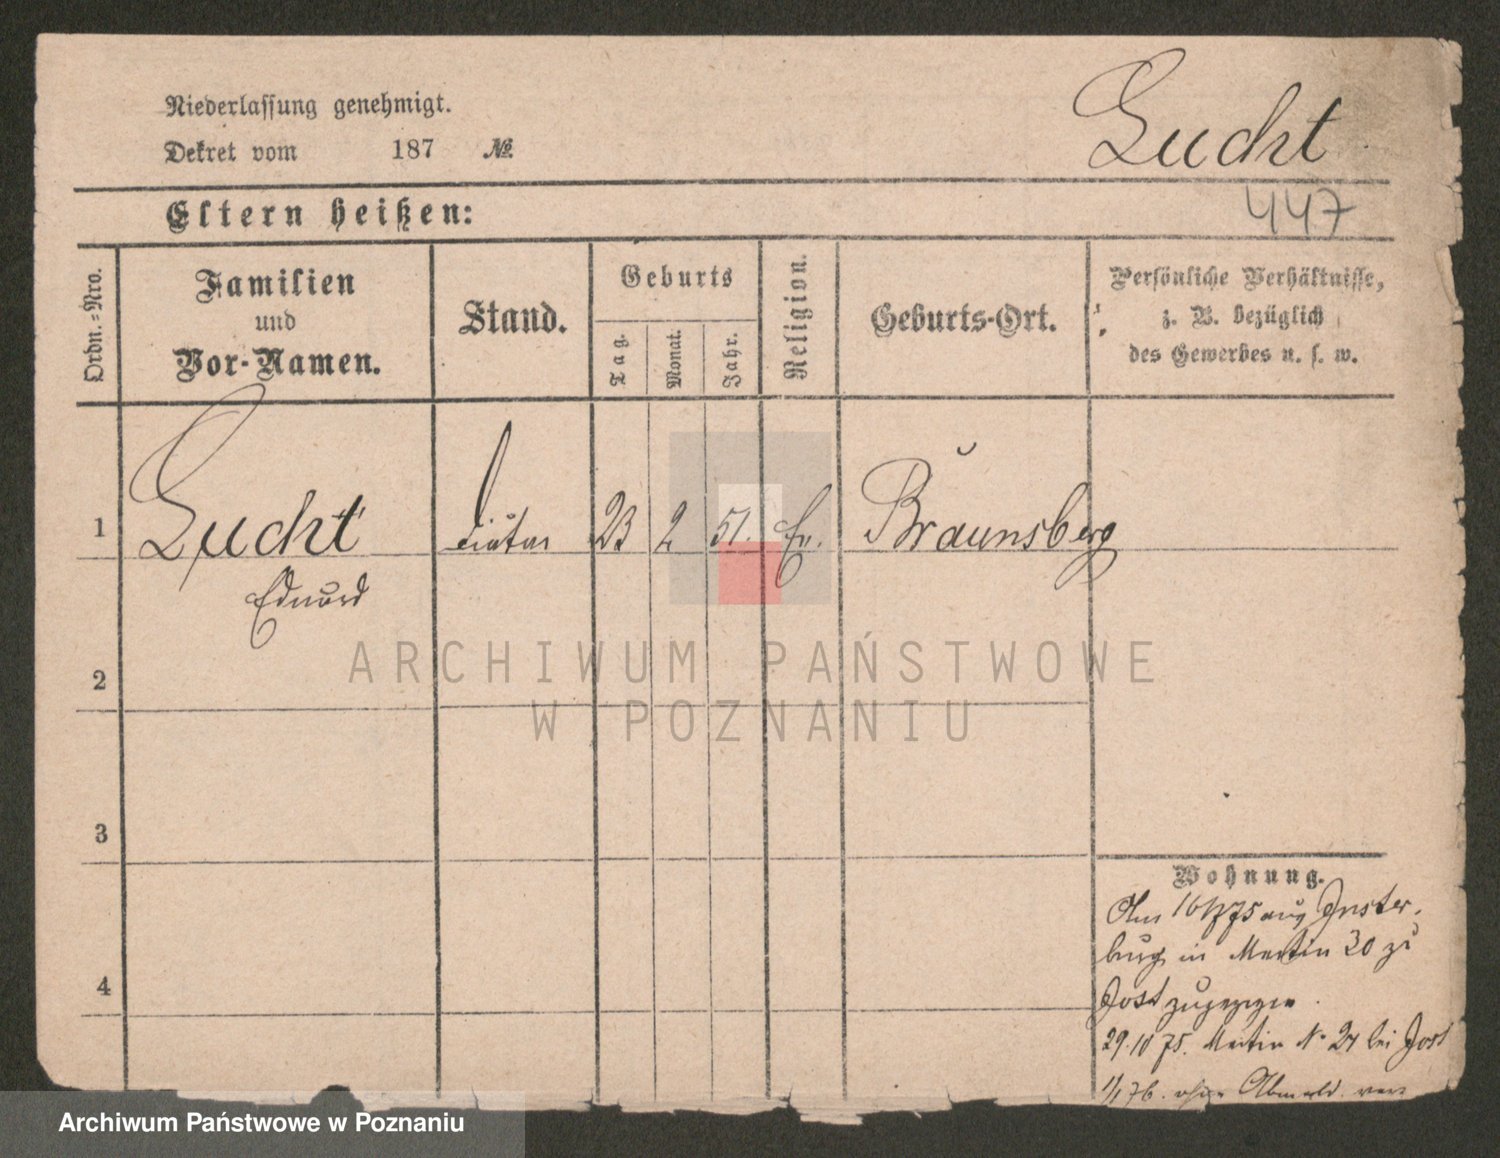 Niederlassung genehmigt.
Dekret vom 187 №.
Lucht
447
Eltern heißen:
Ordn.-Nro.
Familien
und
Vor-Namen.
Stand.
Geburts
Tag.
Monat.
Jahr.
Religion.
Geburts-Ort.
Persönliche Verhältnisse,
z. B. bezüglich
des Gewerbes u. s. w.
1 Lucht 23 2 51. Ev. Braunsberg
Eduard
2
3
4
Wohnung.
Am aus Inster-
burg in Martin 30 zu
Jost zugezogen.
29.10 75. Martin No 24 bei Jost
1/1 76. ohne Abmeld.
ARCHIWUM PAŃSTWOWE
W POZNANIU
Archiwum Państwowe w Poznaniu